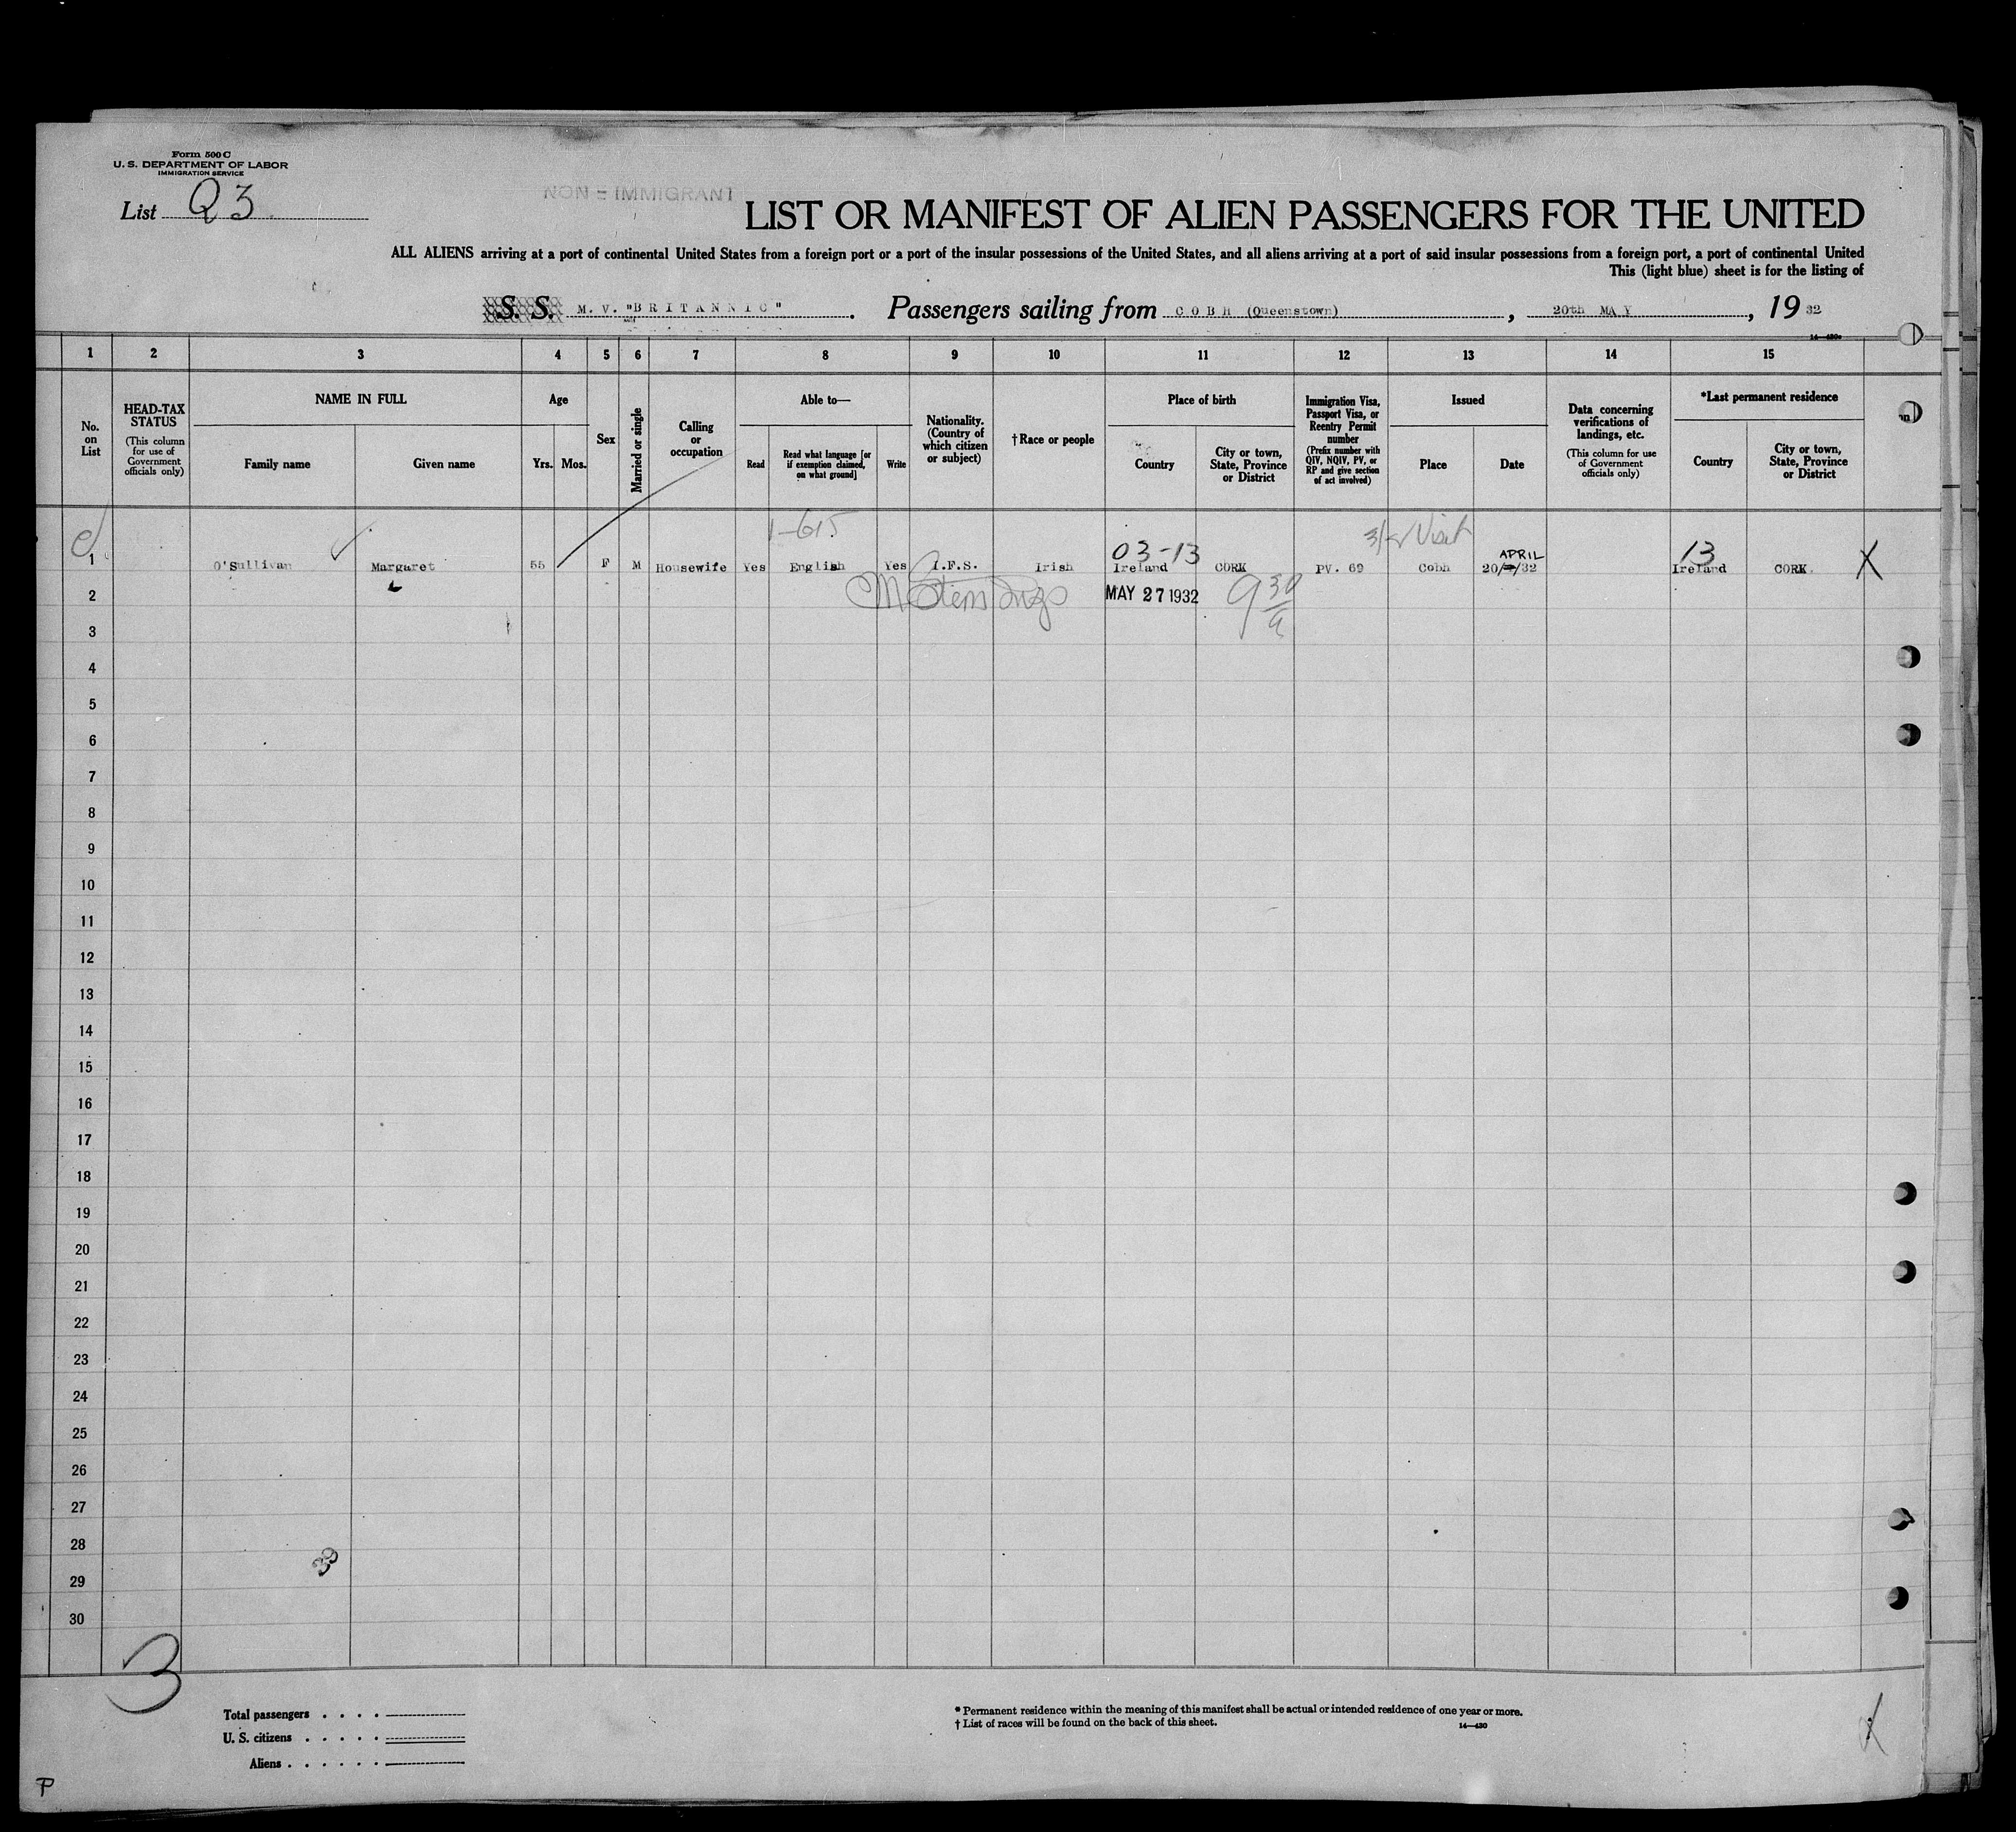 Form 500 C
U. S. DEPARTMENT OF LABOR
IMMIGRATION SERVICE
List Q 3
NON = IMMIGRANT
LIST OR MANIFEST OF ALIEN PASSENGERS FOR THE UNITED
ALL ALIENS arriving at a port of continental United States from a foreign port or a port of the insular possessions of the United States, and all aliens arriving at a port of said insular possessions from a foreign port, a port of continental United
This (light blue) sheet is for the listing of
S. S. M. V. "BRITANNIC". Passengers sailing from COBH (Queenstown), 20th MAY, 1932
1 2 3 4 5 6 7 8 9 10 11 12 13 14 15
No. on List
HEAD-TAX STATUS
(This column for use of Government officials only)
NAME IN FULL
Family name
Given name
Age
Yrs. Mos.
Sex
Married or single
Calling or occupation
Able to—
Read
Read what language [or if exemption claimed, on what ground]
Write
Nationality. (Country of which citizen or subject)
†Race or people
Place of birth
Country
City or town, State, Province or District
Immigration Visa, Passport Visa, or Reentry Permit number
(Prefix number with QIV, NQIV, PV, or RP and give section of act involved)
Issued
Place
Date
Data concerning verifications of landings, etc.
(This column for use of Government officials only)
*Last permanent residence
Country
City or town, State, Province or District
1-615
03-13
Visit
APRIL
13
1 O'Sullivan Margaret 55 F M Housewife Yes English Yes I.F.S. Irish Ireland CORK PV. 69 Cobh 20/ /32 Ireland CORK. X
2 MAY 27 1932 9 30
3
4
5
6
7
8
9
10
11
12
13
14
15
16
17
18
19
20
21
22
23
24
25
26
27
28
29
30
3
Total passengers . . . .
U. S. citizens . . . . .
Aliens . . . . . .
* Permanent residence within the meaning of this manifest shall be actual or intended residence of one year or more.
† List of races will be found on the back of this sheet.
14—430
P